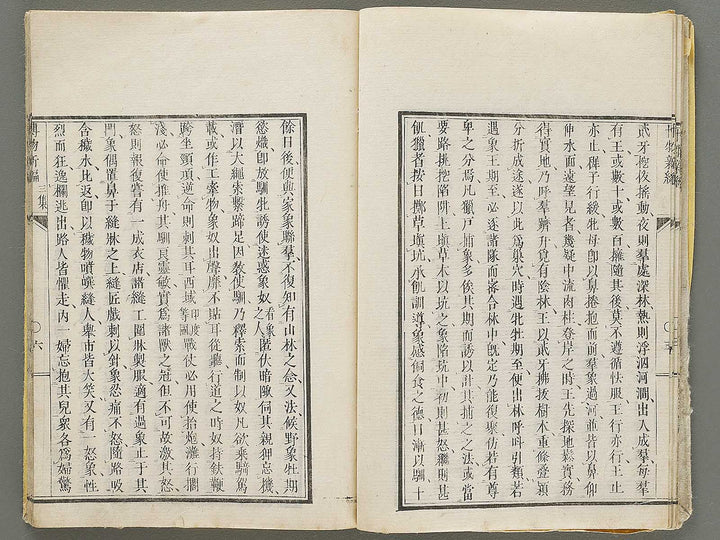 武牙挖夜搖動、夜則羣處深林熱則浮泅河澗、出入成羣每羣
有王或數十或數百擁隨其後莫不遵循怯服王行亦行王止
亦止稗子行緩牝母卽以鼻捲抱而前羣象過河並皆以鼻仰
伸水面遠望見者幾疑中流肉柱登岸之時王先探地鬆實務
得實地乃呼羣躋升覓有陰林王以武牙拂拔樹木重條疊穎
分折成途遂以此爲巢穴時遇牝牡期至便出林呼呌引類若
遇象王期至必逐諸隊而密合林中旣定乃能復聚彷若有尊
卑之分焉凡獵戶捕象多俟其期而誘以計其捕之之法或當
要路挑挖陷阱上填草木以坑之象陷坑中初則甚怒繼則甚
飢獵者按日擲草填坑承飢調導象感飼食之德日漸以馴十
餘日後便與家象聯羣不復知有山林之念又法候野象牡期
慾熾卽放馴牝誘使迷惑象奴看象之人匿伏暗隙伺其親狎忘機
潛以大繩索繫蹄足因敎使馴乃釋索而制以奴凡欲乘騎駕
載或作工牽物象奴出聲靡不貼耳從聽行道之時奴持鈇鞭
跨坐頸項違命則刺其耳西域印度等國戰伐必用使抬炮濰行擱
淺必命使推舟其馴良靈敏實爲諸獸之冠但不可故激其怒
怒則報復嘗有一成衣店諸縫工圍牀製服適有過象止于其
門象偶置鼻于縫牀之上縫匠戲刺以針象忍痛不怒隨路吸
含穢水比返卽以穢物噴縫人擧市皆大笑又有一怒象性
烈而狂逸欄逃出路人皆懼走內一婦忘抱其兒衆各爲婦驚
博物新編
三集
六
博物新編